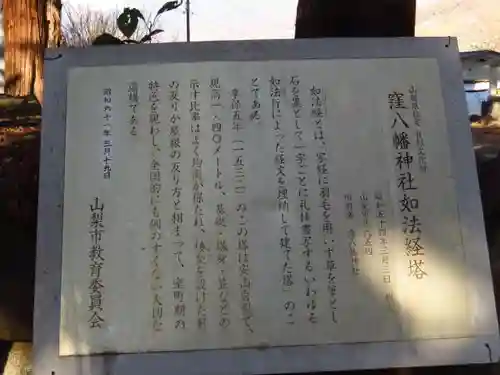 山梨県指定 有形文化財
窪八幡神社如法経塔
昭和五十四年二月
窪八幡神社
如法経とは、写経に羽毛を用いず草を筆とし
石を墨として一字ごとに礼拝書写するいわゆる
如法行によった経文を埋納して建てた塔のこ
とである。
享禄五年(一五三二)のこの塔は安山岩製で、
現高一・四〇メートル、基礎・塔身・笠などの
示す比率はよく均衡が保たれ、
の反りが屋根の反り方と相まって、室町期の
特色を現わし、全国的にも例の少ない大切な
遺構である
昭和六十一年三月十九日
山梨市教育委員会